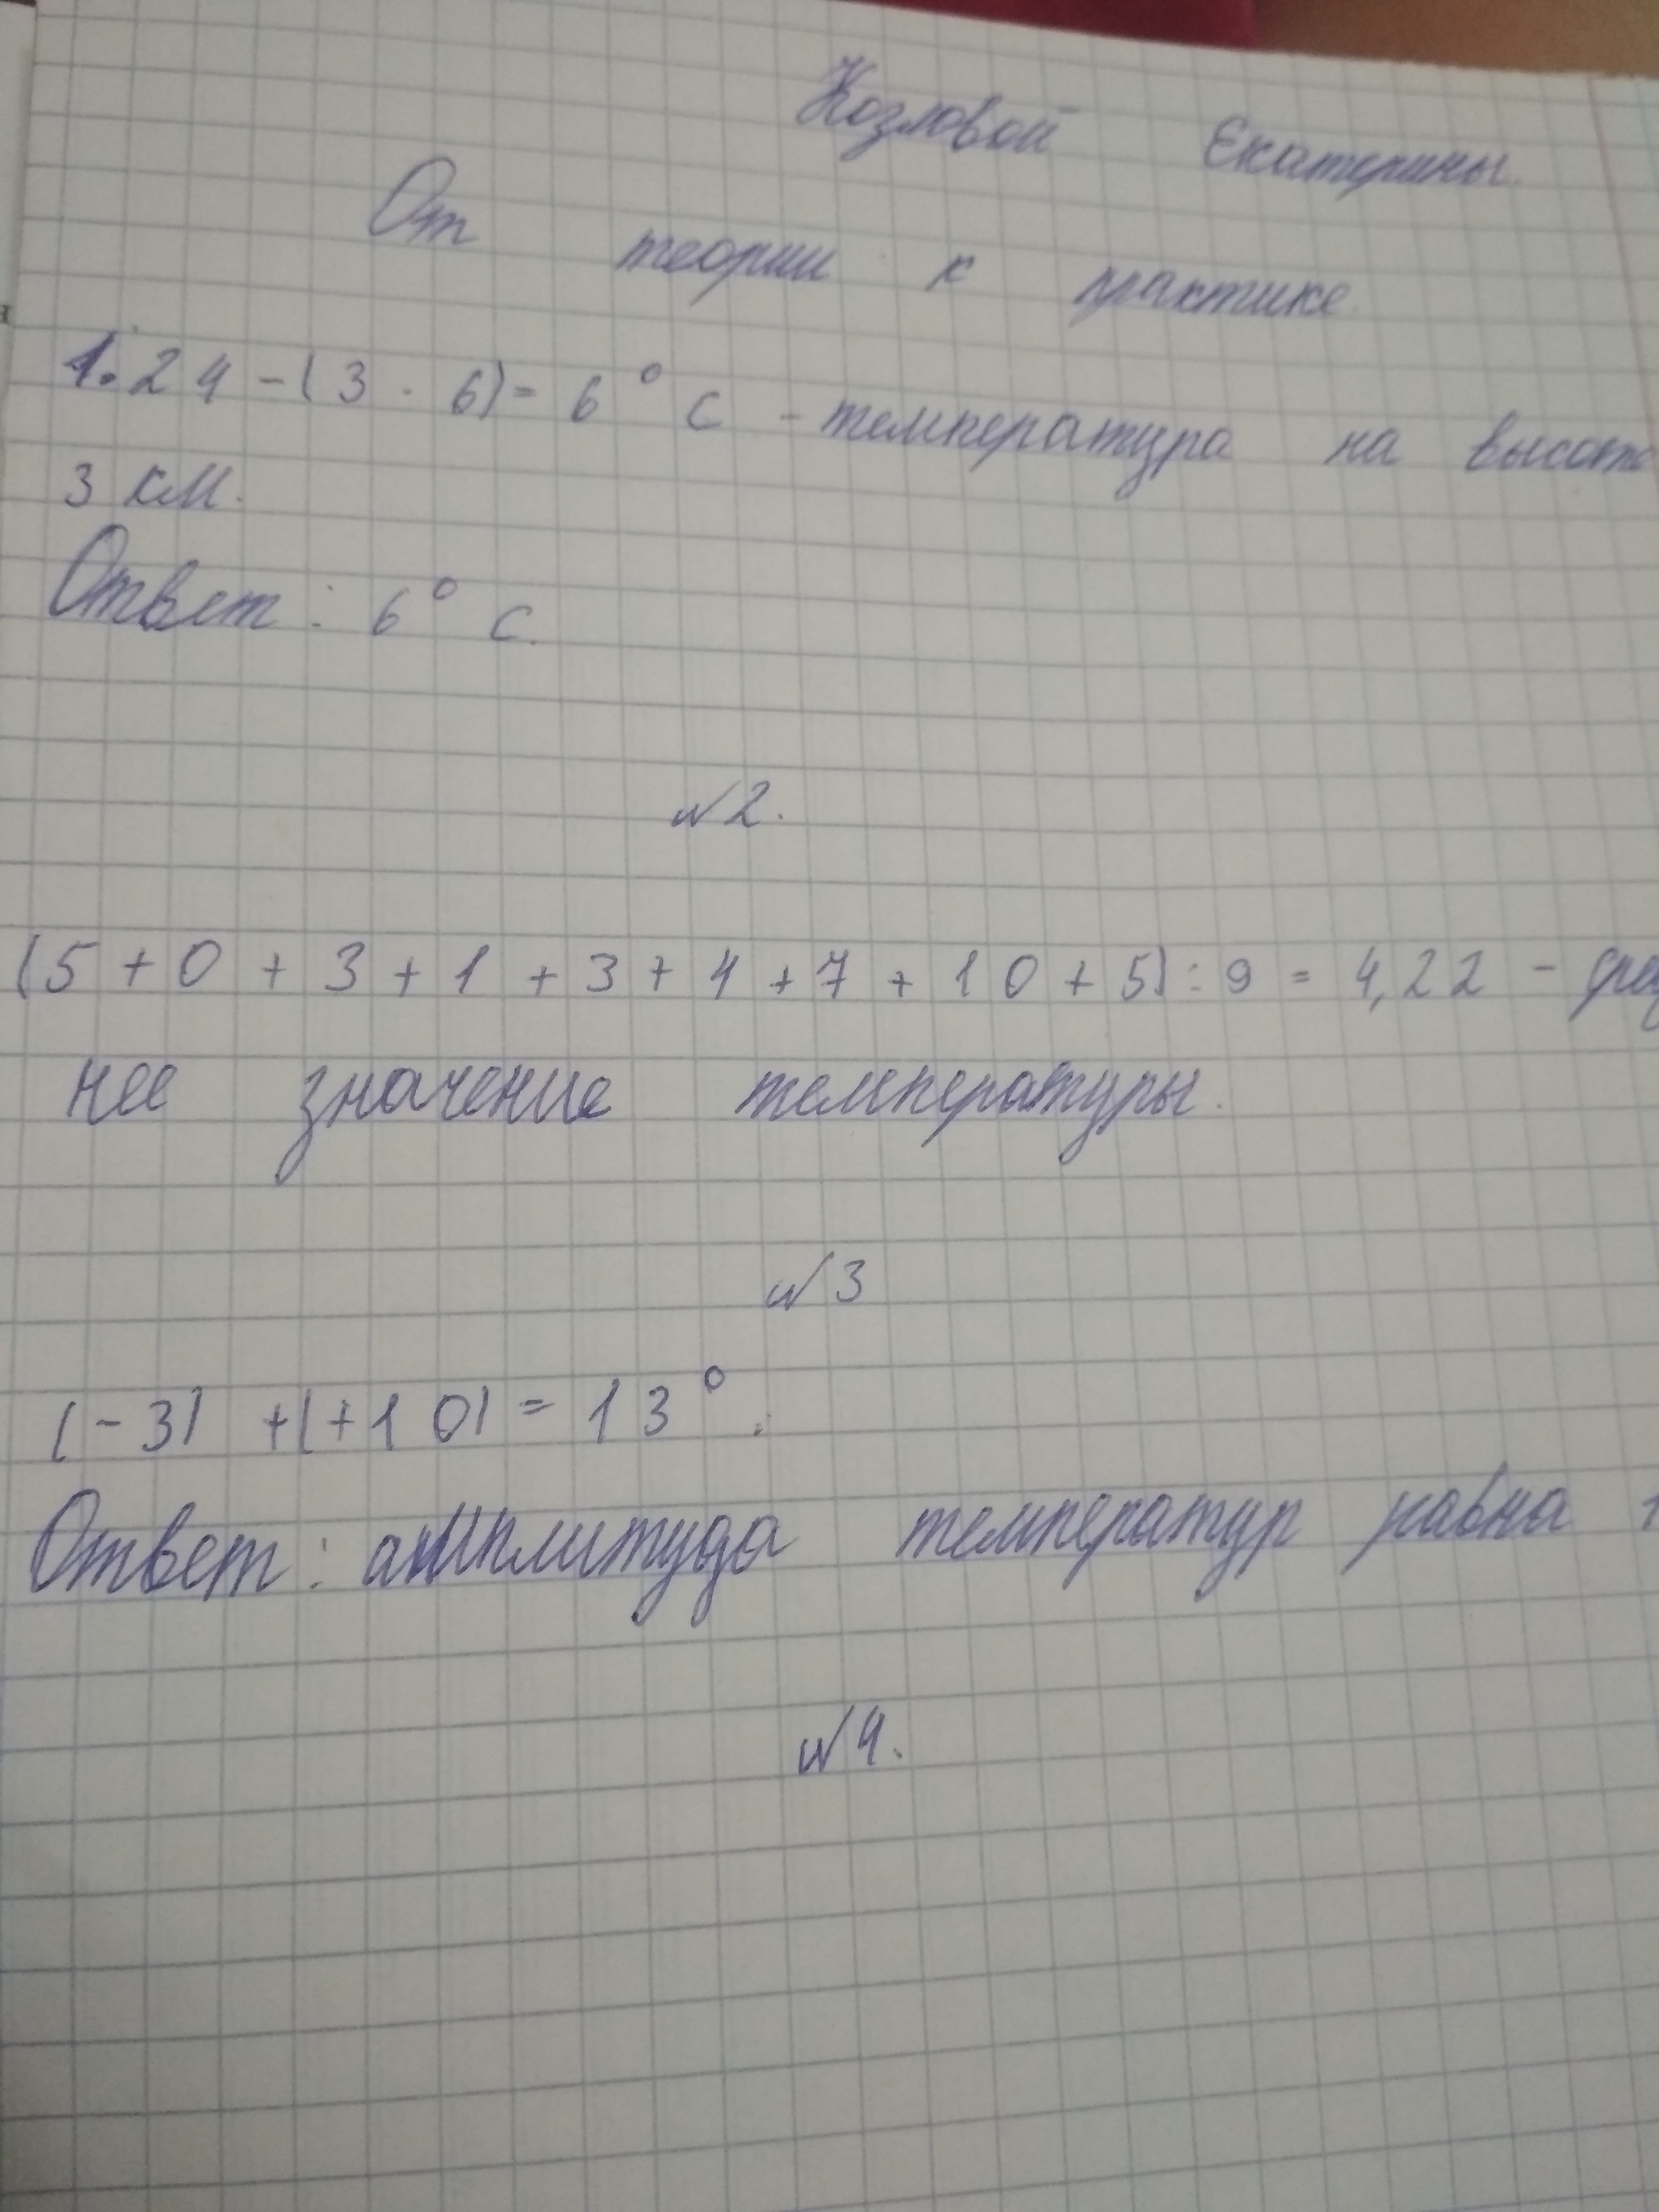 Козловой Екатерины.
От теории к практике
1. 24 - (3 · 6) = 6° С - температура на высоте
3 км.
Ответ: 6° С.
№2.
(5 + 0 + 3 + 1 + 3 + 4 + 7 + 10 + 5) : 9 = 4,22 - сред
нее значение температуры.
№3
(-3) + (+10) = 13°.
Ответ: амплитуда температур равна 1
№4.